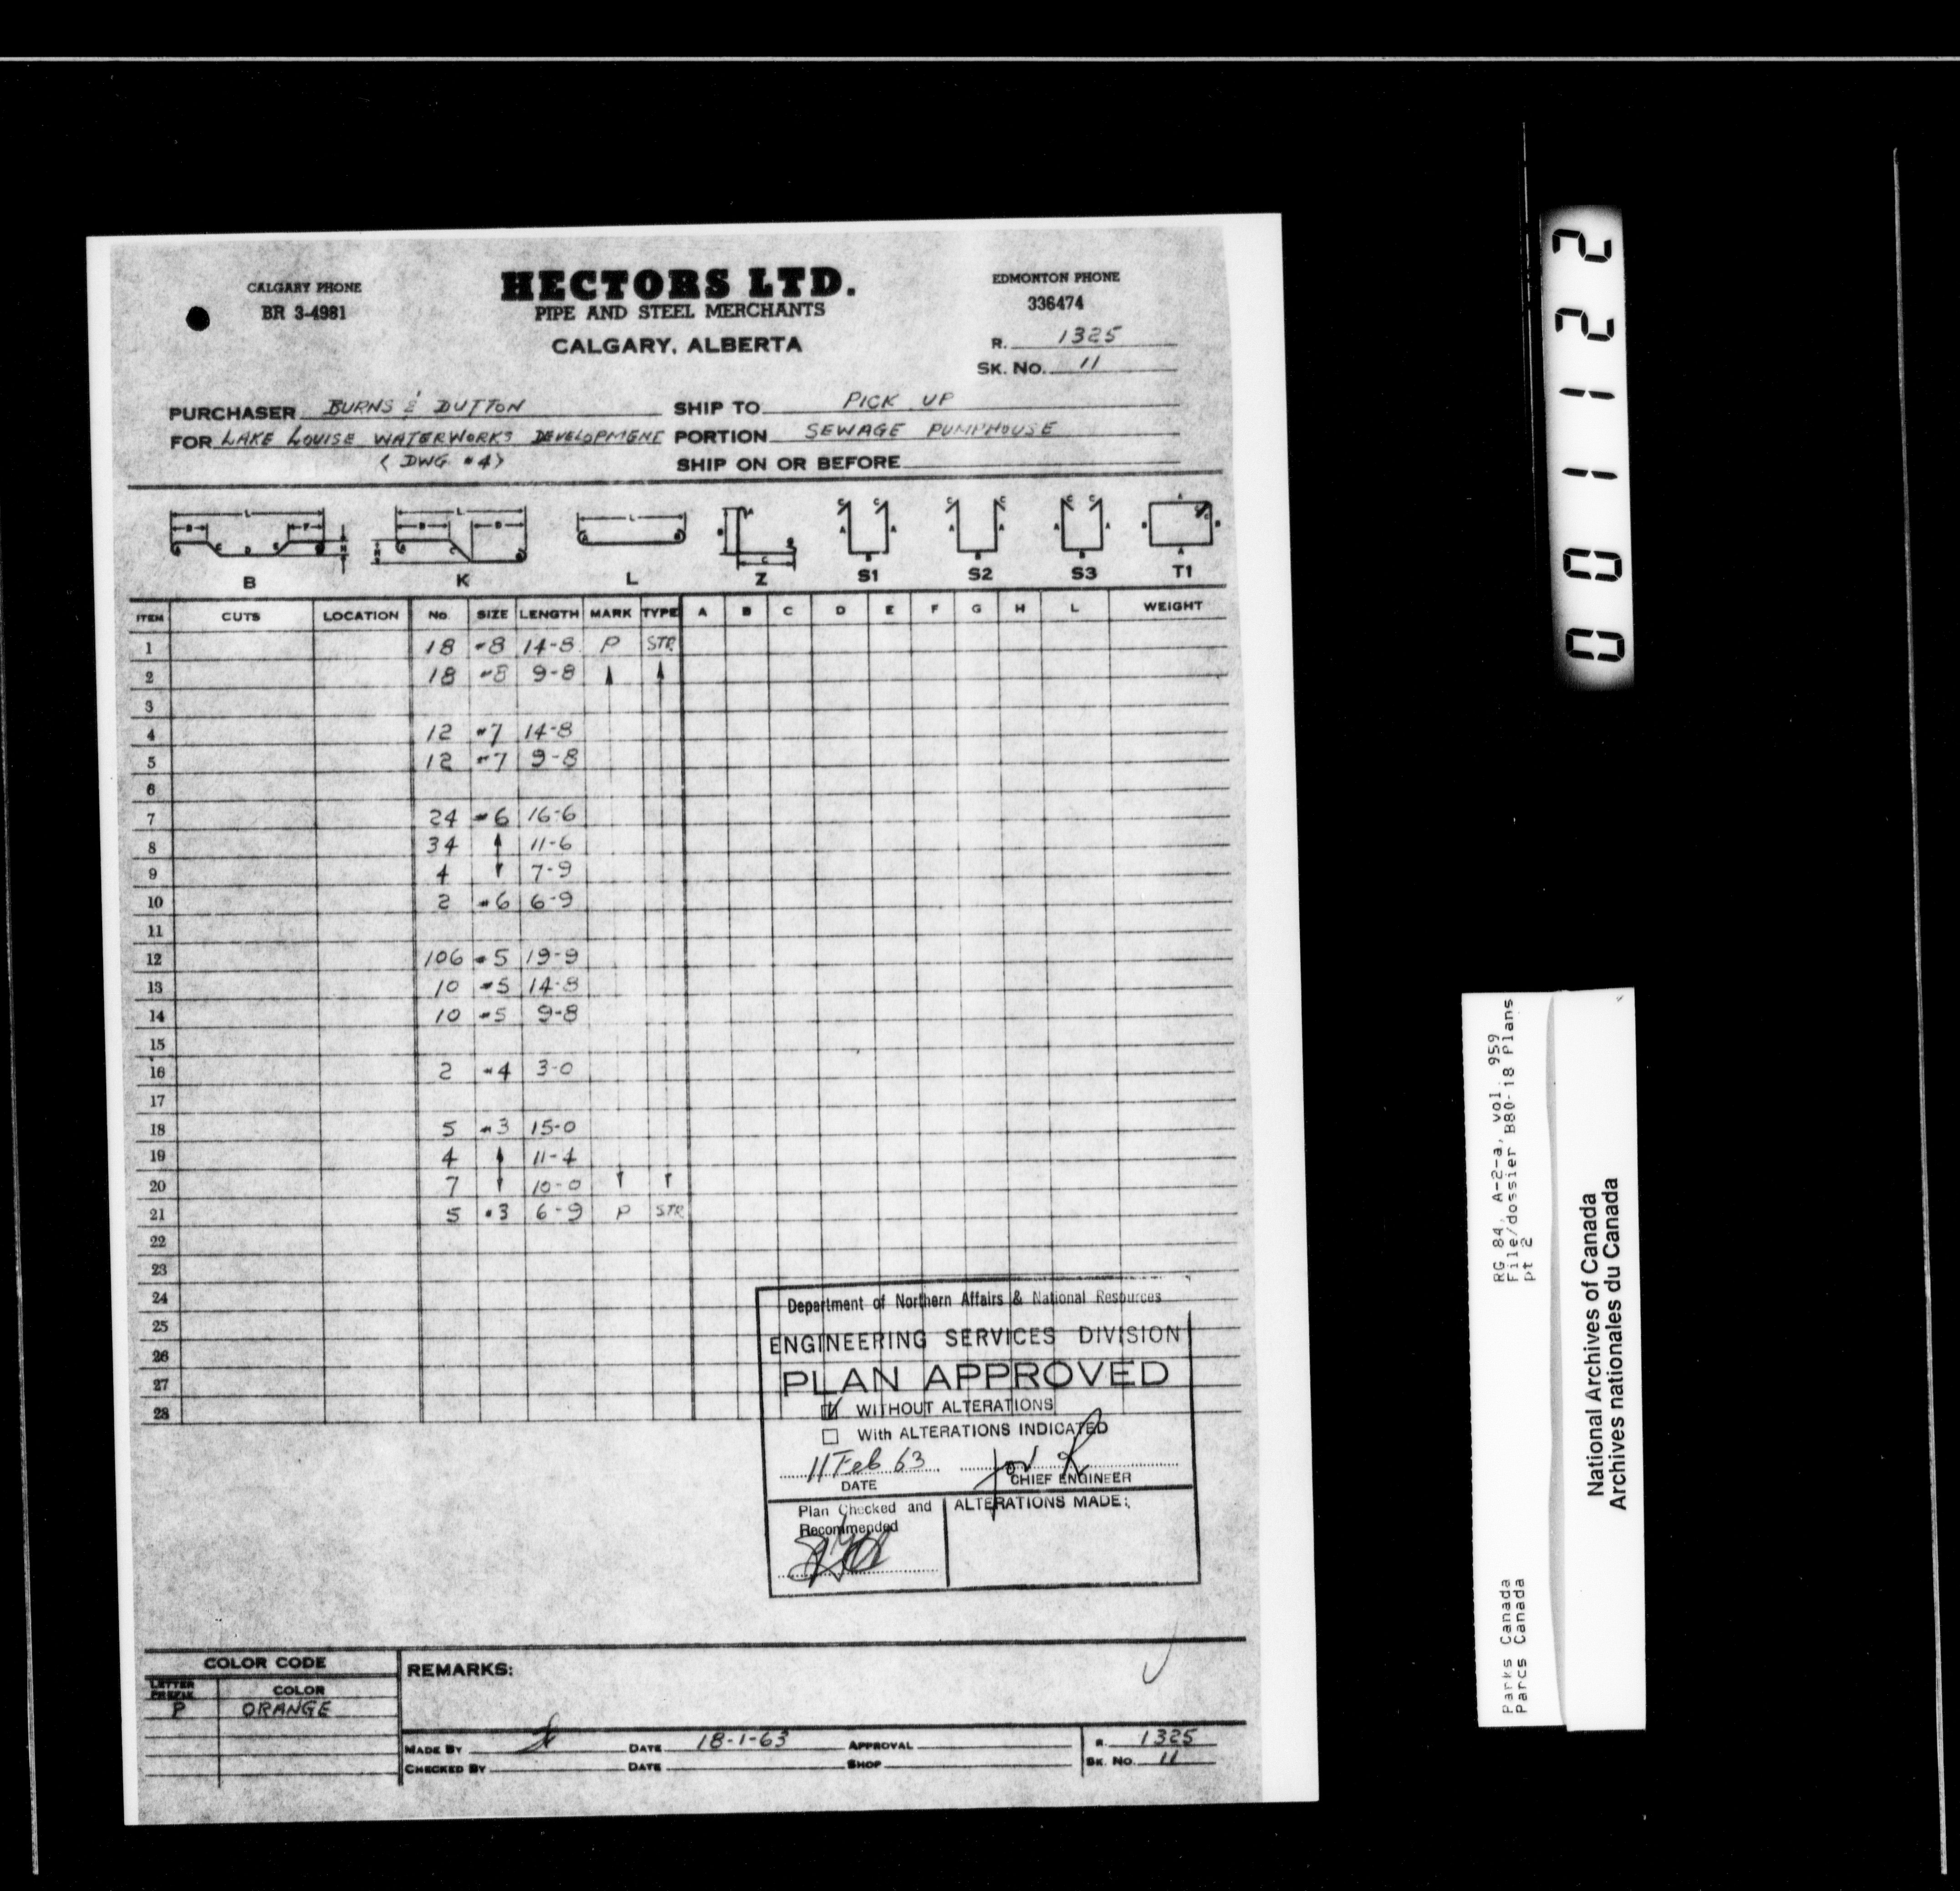 CALGARY PHONE
BR 3-4981
HECTORS LTD.
PIPE AND STEEL MERCHANTS
CALGARY, ALBERTA
EDMONTON PHONE
336474
R. 1325
SK. NO. 11
PURCHASER BURNS & DUTTON SHIP TO PICK UP
FOR LAKE LOUISE WATERWORKS DEVELOPMENT PORTION SEWAGE PUMPHOUSE
(DWG #4) SHIP ON OR BEFORE
B K L Z S1 S2 S3 T1
ITEM CUTS LOCATION No. SIZE LENGTH MARK TYPE A B C D E F G H L WEIGHT
1 18 #8 14-8 P STR.
2 18 #8 9-8
3
4 12 #7 14-8
5 12 #7 9-8
6
7 24 #6 16-6
8 34 11-6
9 4 7-9
10 2 #6 6-9
11
12 106 #5 19-9
13 10 #5 14-8
14 10 #5 9-8
15
16 2 #4 3-0
17
18 5 #3 15-0
19 4 11-4
20 7 10-0
21 5 #3 6-9 P STR.
22
23
24
25
26
27
28
Department of Northern Affairs & National Resources
ENGINEERING SERVICES DIVISION
PLAN APPROVED
WITHOUT ALTERATIONS
With ALTERATIONS INDICATED
11 Feb 63
DATE
CHIEF ENGINEER
Plan Checked and
Recommended
ALTERATIONS MADE:
COLOR CODE
LETTER PREFIX COLOR
P ORANGE
REMARKS:
MADE BY DATE 18-1-63 APPROVAL R. 1325
CHECKED BY DATE SHOP SK. NO. 11
001122
RG 84, A-2-a, vol. 959
File/dossier B80-18 Plans
pt 2
Parks Canada
Parcs Canada
National Archives of Canada
Archives nationales du Canada